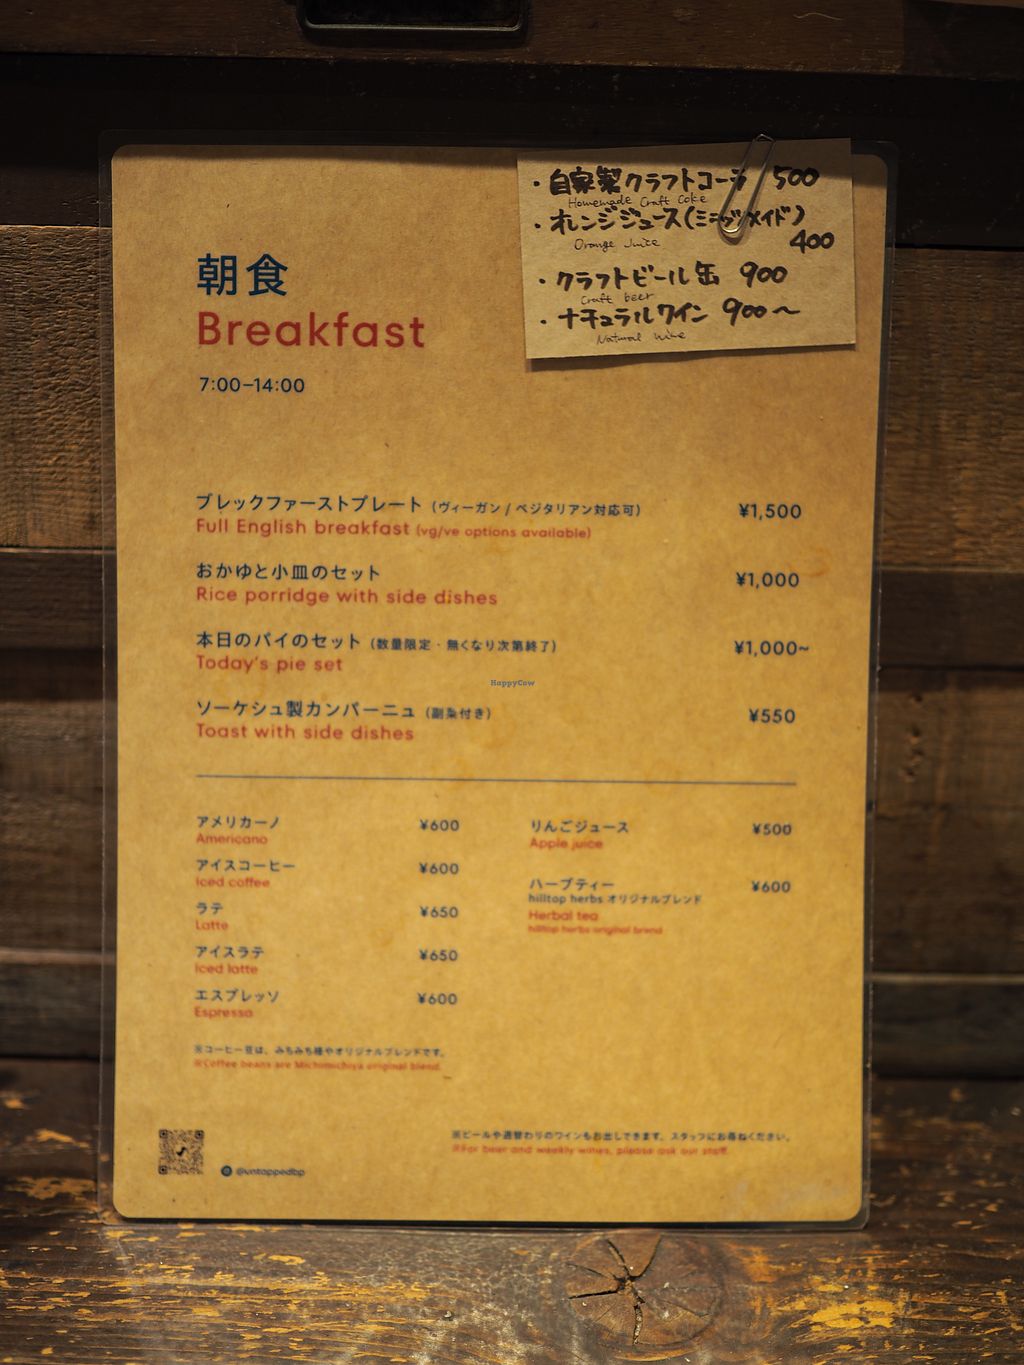 ・自家製クラフトコーラ 500
Homemade Craft Coke
・オレンジジュース(ミニッツメイド)
Orange Juice
400
・クラフトビール缶 900
Craft beer
・ナチュラルワイン 900〜
Natural wine
朝食
Breakfast
7:00–14:00
ブレックファーストプレート (ヴィーガン / ベジタリアン対応可) ¥1,500
Full English breakfast (vg/ve options available)
おかゆと小皿のセット ¥1,000
Rice porridge with side dishes
本日のパイのセット (数量限定・無くなり次第終了) ¥1,000~
Today's pie set
HappyCow
ソーケシュ製カンパーニュ (副菜付き) ¥550
Toast with side dishes
アメリカーノ ¥600
Americano
アイスコーヒー ¥600
Iced coffee
ラテ ¥650
Latte
アイスラテ ¥650
Iced latte
エスプレッソ ¥600
Espresso
りんごジュース ¥500
Apple juice
ハーブティー ¥600
hilltop herbs オリジナルブレンド
Herbal tea
hilltop herbs original blend
※コーヒー豆は、みちみち種やオリジナルブレンドです。
※Coffee beans are Michimichiya original blend.
@untappedbp
※ビールや週替わりのワインもお出しできます。スタッフにお尋ねください。
※For beer and weekly wines, please ask our staff.